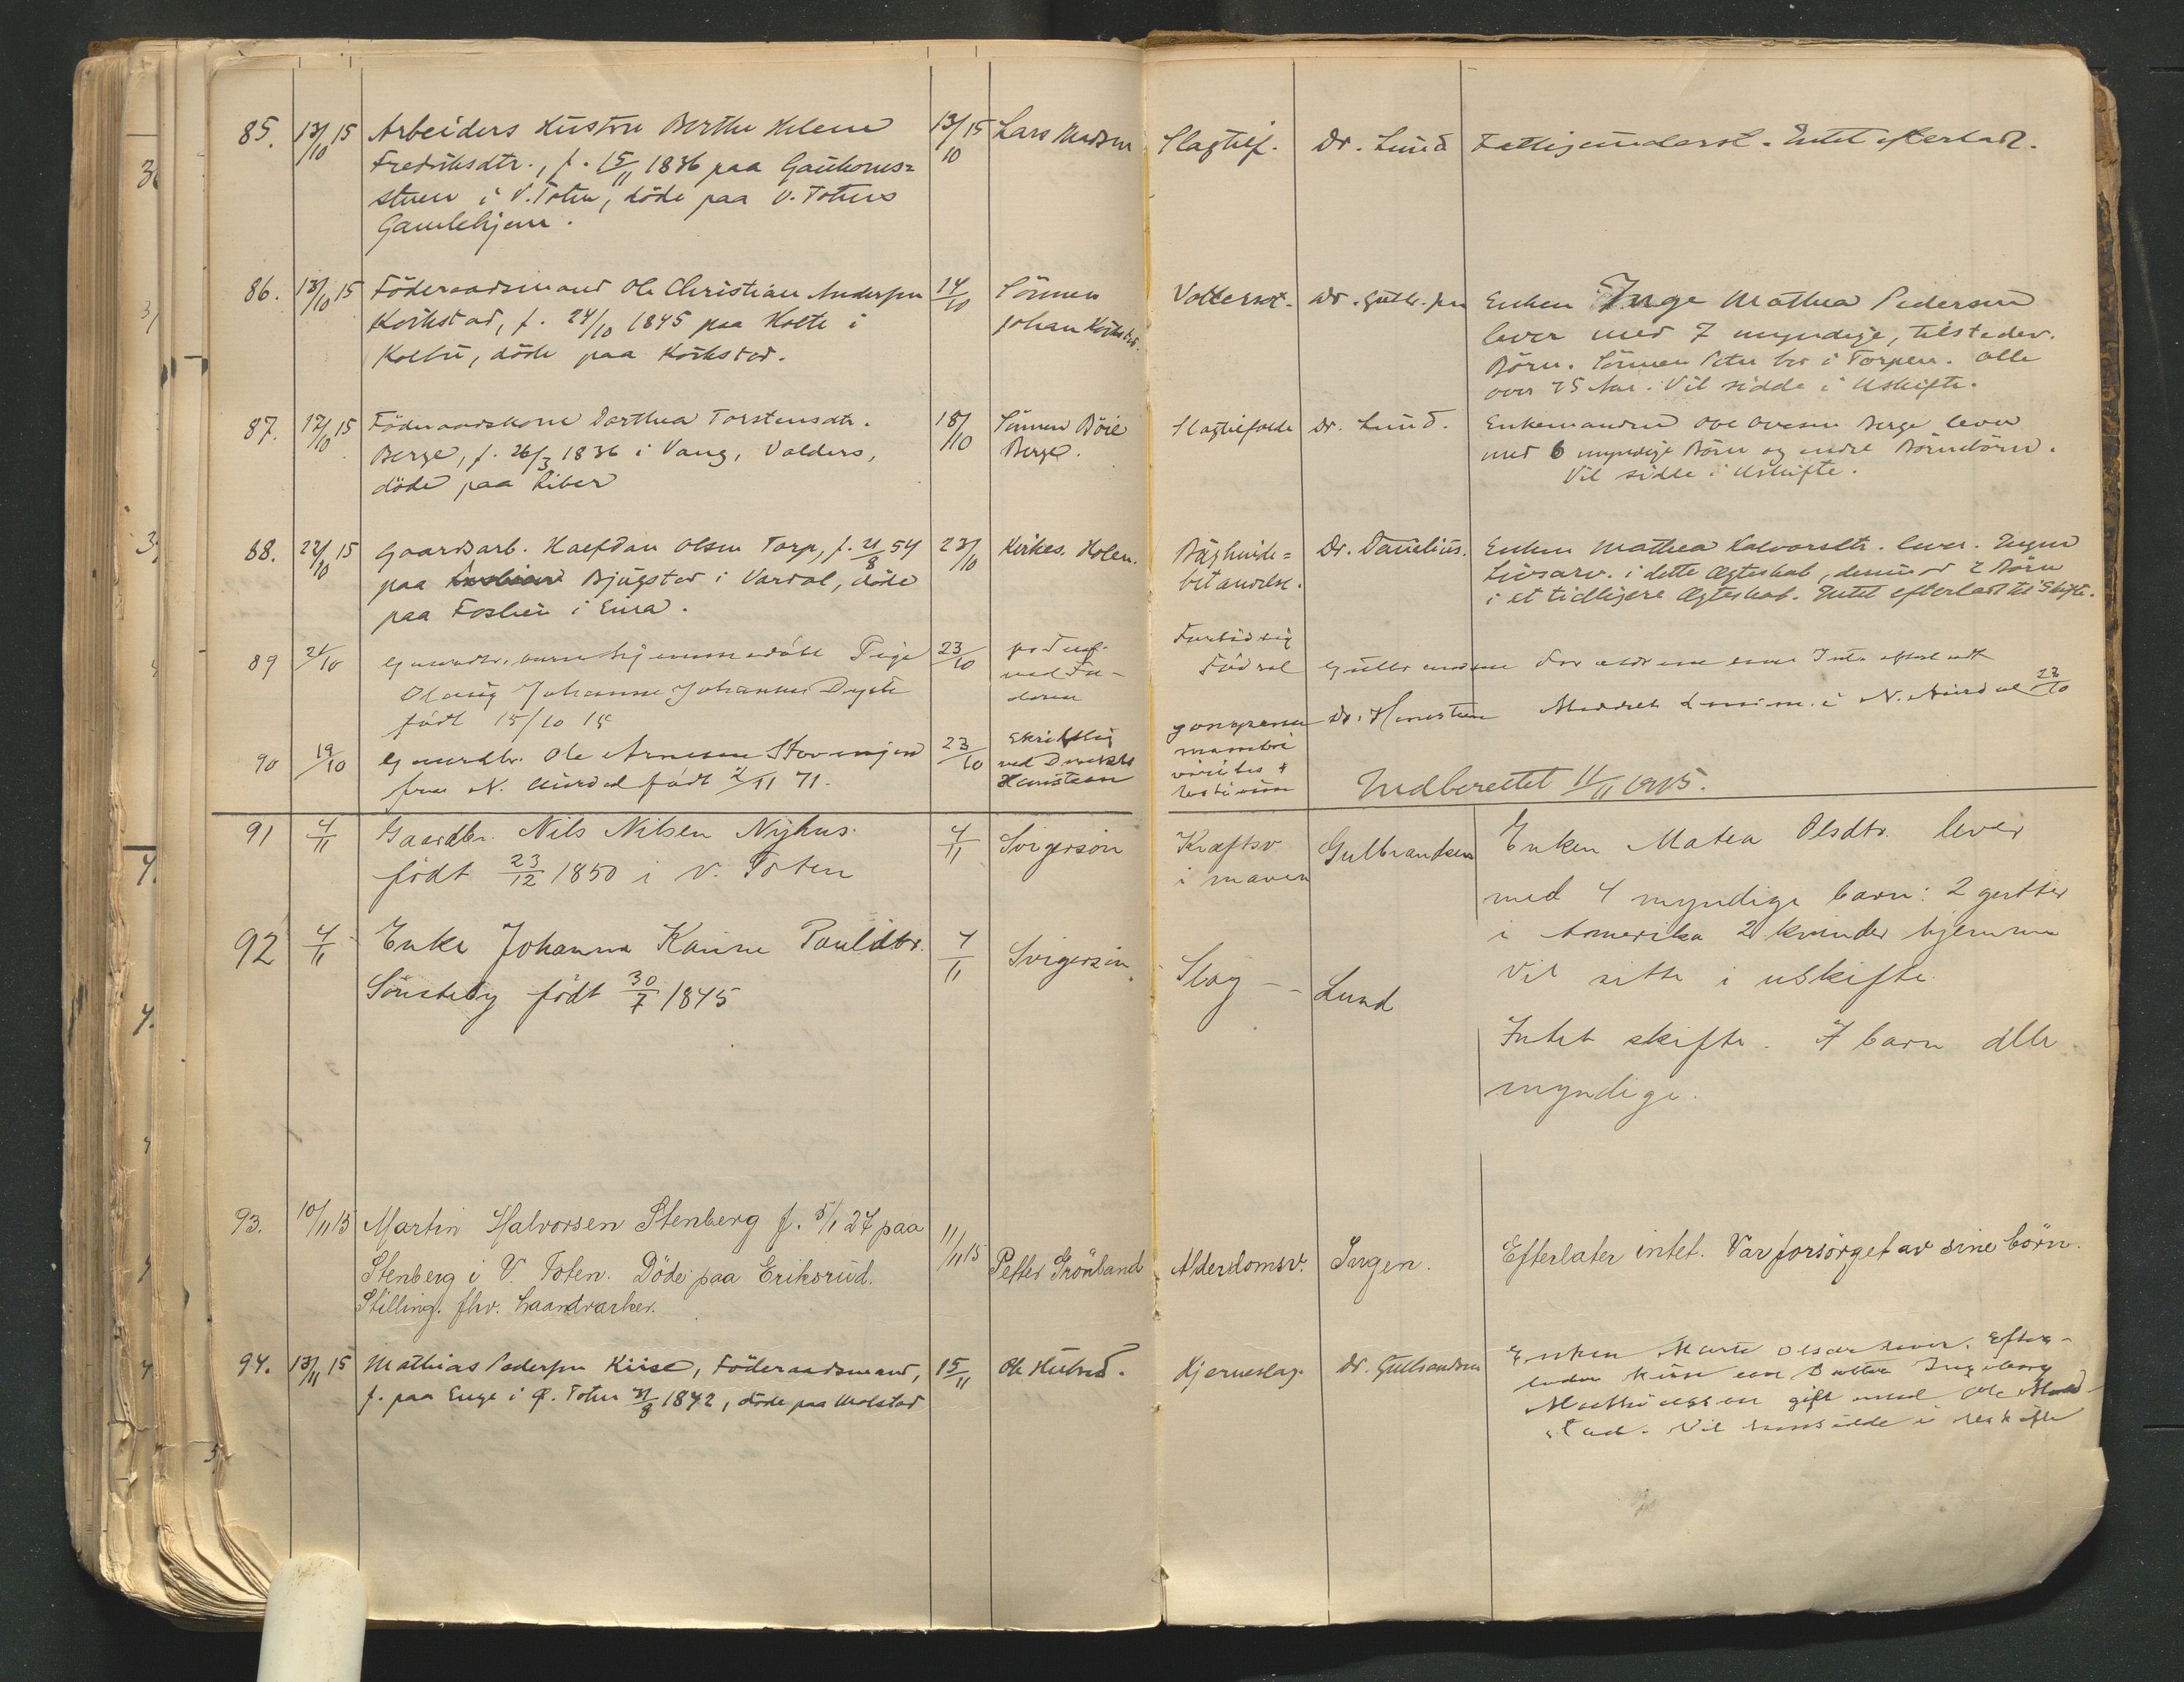 85. 13/10 15 Arbeiders Hustru Berthe Helene 13/10 15 Lars Madsen Slagtilf. Dr. Lund Fattigunderst. Intet efterladt.
Fredriksdtr., f. 15/11 1836 paa Gaukoms=
stuen i V. Toten, döde paa V. Totens
Gamlehjem.
86. 13/10 15 Föderaadsmand Ole Christian Andersen 14/10 Sönnen Vattersot. Dr. Gulbr.sen Enken Inge Mathea Pedersen
Korkstad, f. 24/10 1845 paa Holte i Johan Korkstad. lever med 7 myndige, tilstedev.
Kolbu, döde paa Korkstad. Börn. Sönnen Peter bor i Torpen. Alle
over 25 Aar. Vil sidde i Uskifte.
87. 17/10 15 Föderaadskone Dorthea Torstensdtr. 18/10 Sönnen Böie Slagtilfælde Dr. Lund. Enkemanden Ove Ovesen Berge lever
Berge, f. 26/3 1836 i Vang, Valders, Berge. med 6 myndige Börn og endel Börnebörn.
döde paa Liber Vil sidde i Uskifte.
88. 22/10 15 Gaardsarb. Halfdan Olsen Torp, f. 21/8 54 23/10 Kirkes. Holen. Bughinde= Dr. Danelius. Enken Mathea Halvorsdtr. lever. Ingen
paa Bjugstad i Vardal, döde betændelse. Livsarv. i dette Ægteskab, derimod 2 Börn
paa Foslien i Eina. i et tidligere Ægteskab. Intet efterladt til Skifte.
89 21/10 Gaardbr. barn hjemmedöbt Pige 23/10 pr Telef. Fortidlig
Olaug Johanne Johannes Dyste ved Fa- Födsel
födt 15/10 15 deren
90 19/10 Gaardbr. Ole Arnesen Stavenjord 23/10 Skriftlig gangrena Dr. Hansteen Meddelt Lensm. i N. Aurdal 23/10
fra N. Aurdal födt 2/11 71. ved Direktör
Hansteen
Indberettet 11/11 1915.
91 4/11 Gaardbr. Nils Nilsen Nyhus. 4/11 Svigersön Kræftsv. Gulbrandsen Enken Matea Olsdtr. lever
födt 23/12 1850 i V. Toten i maven med 4 myndige barn: 2 gutter
i Amerika 2 kvinder hjemme
Vil sitte i uskifte.
92 4/11 Enke Johanna Karine Pauldtr. 4/11 Svigersön. Slag -- Lund
Sönsteby födt 30/7 1845
Intet skifte. 7 barn alle
myndige.
93. 10/11 15 Martin Halvorsen Stenberg f. 5/1 27 paa 11/11 15 Petter Grönland Alderdomsv. Ingen. Efterlater intet. Var forsörget av sine börn.
Stenberg i V. Toten. Döde paa Eriksrud.
Stilling. fhv. haandverker.
94. 13/11 15 Mathias Pedersen Kiise, Föderaadsmand, 15/11 Ole Hulred. Hjerneslag. Dr. Gulbrandsen Enken Marte Olsdr lever. Efter-
f. paa Enge i Ø. Toten 31/8 1842, döde paa Molstad lader kun een Datter Ingeborg
Mathiassen gift med Ole Mol-
stad. Vil sidde i Uskifte